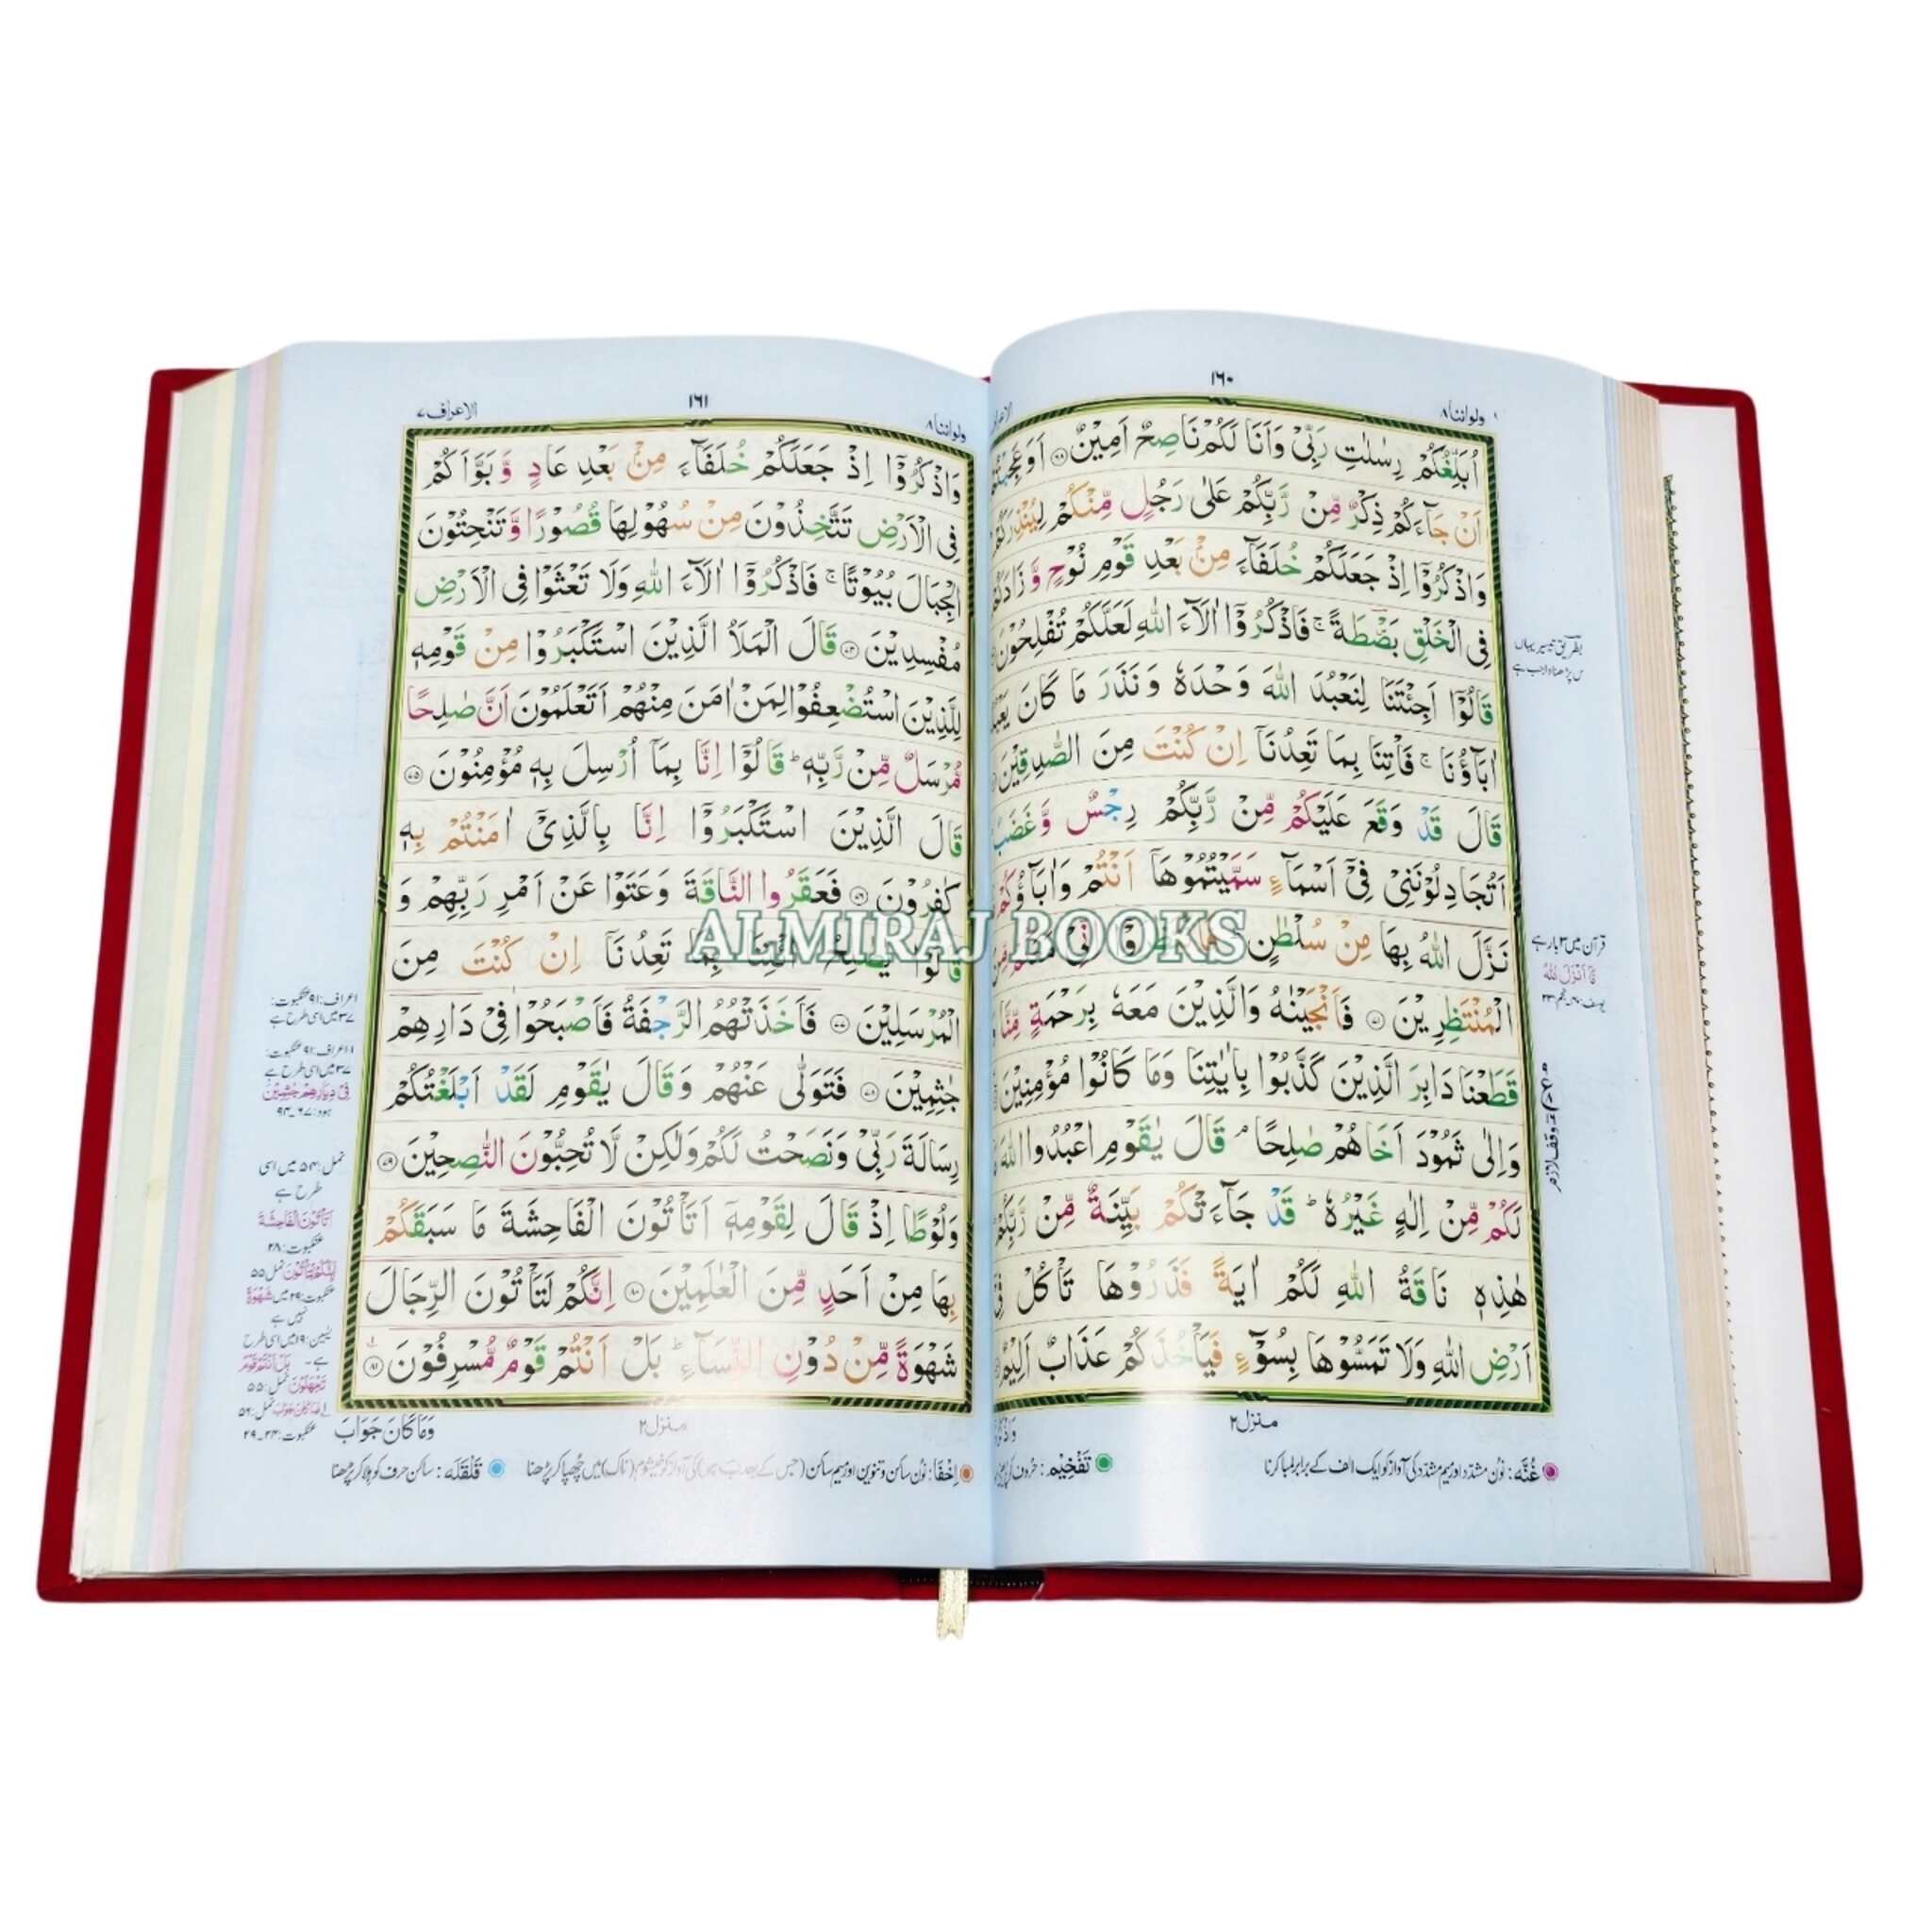 ١٦٠
ولواننا ٨
اُبَلِّغُكُمْ رِسٰلٰتِ رَبِّىْ وَاَنَا لَكُمْ نَاصِحٌ اَمِيْنٌ ۶۸ اَوَعَجِبْتُمْ
اَنْ جَآءَكُمْ ذِكْرٌ مِّنْ رَّبِّكُمْ عَلٰى رَجُلٍ مِّنْكُمْ لِيُنْذِرَكُمْ
وَاذْكُرُوْٓا اِذْ جَعَلَكُمْ خُلَفَآءَ مِنْۢ بَعْدِ قَوْمِ نُوْحٍ وَّزَادَكُمْ
فِى الْخَلْقِ بَصْۜطَةً ۚ فَاذْكُرُوْٓا اٰلَآءَ اللّٰهِ لَعَلَّكُمْ تُفْلِحُوْنَ
قَالُوْٓا اَجِئْتَنَا لِنَعْبُدَ اللّٰهَ وَحْدَهٗ وَنَذَرَ مَا كَانَ يَعْبُدُ
اٰبَآؤُنَا ۚ فَاْتِنَا بِمَا تَعِدُنَآ اِنْ كُنْتَ مِنَ الصّٰدِقِيْنَ
قَالَ قَدْ وَقَعَ عَلَيْكُمْ مِّنْ رَّبِّكُمْ رِجْسٌ وَّغَضَبٌ
اَتُجَادِلُوْنَنِىْ فِىْٓ اَسْمَآءٍ سَمَّيْتُمُوْهَآ اَنْتُمْ وَاٰبَآؤُكُمْ
نَزَّلَ اللّٰهُ بِهَا مِنْ سُلْطٰنٍ
الْمُنْتَظِرِيْنَ ۷۱ فَاَنْجَيْنٰهُ وَالَّذِيْنَ مَعَهٗ بِرَحْمَةٍ مِّنَّا
قَطَعْنَا دَابِرَ الَّذِيْنَ كَذَّبُوْا بِاٰيٰتِنَا وَمَا كَانُوْا مُؤْمِنِيْنَ
وَاِلٰى ثَمُوْدَ اَخَاهُمْ صٰلِحًا ۘ قَالَ يٰقَوْمِ اعْبُدُوا اللّٰهَ
لَكُمْ مِّنْ اِلٰهٍ غَيْرُهٗ ؕ قَدْ جَآءَتْكُمْ بَيِّنَةٌ مِّنْ رَّبِّكُمْ
هٰذِهٖ نَاقَةُ اللّٰهِ لَكُمْ اٰيَةً فَذَرُوْهَا تَاْكُلْ فِىْٓ
اَرْضِ اللّٰهِ وَلَا تَمَسُّوْهَا بِسُوْٓءٍ فَيَاْخُذَكُمْ عَذَابٌ اَلِيْمٌ
منزل ٢
بطریق تیسیر یہاں
س پڑھنا واجب ہے
قرآن میں ۳ بار ہے
مَآ اَنْزَلَ اللّٰهُ
وقف لازم
غُنَّه : نون مشدد اور میم مشدد کی آواز کو ایک الف کے برابر لمبا کرنا
تَفْخِيْم : حروف کو
١٦١
الاعراف ٧
ولواننا ٨
وَاذْكُرُوْٓا اِذْ جَعَلَكُمْ خُلَفَآءَ مِنْۢ بَعْدِ عَادٍ وَّبَوَّاَكُمْ
فِى الْاَرْضِ تَتَّخِذُوْنَ مِنْ سُهُوْلِهَا قُصُوْرًا وَّتَنْحِتُوْنَ
الْجِبَالَ بُيُوْتًا ۚ فَاذْكُرُوْٓا اٰلَآءَ اللّٰهِ وَلَا تَعْثَوْا فِى الْاَرْضِ
مُفْسِدِيْنَ ۷۴ قَالَ الْمَلَاُ الَّذِيْنَ اسْتَكْبَرُوْا مِنْ قَوْمِهٖ
لِلَّذِيْنَ اسْتُضْعِفُوْا لِمَنْ اٰمَنَ مِنْهُمْ اَتَعْلَمُوْنَ اَنَّ صٰلِحًا
مُّرْسَلٌ مِّنْ رَّبِّهٖ ؕ قَالُوْٓا اِنَّا بِمَآ اُرْسِلَ بِهٖ مُؤْمِنُوْنَ ۷۵
قَالَ الَّذِيْنَ اسْتَكْبَرُوْٓا اِنَّا بِالَّذِىْٓ اٰمَنْتُمْ بِهٖ
كٰفِرُوْنَ ۷۶ فَعَقَرُوا النَّاقَةَ وَعَتَوْا عَنْ اَمْرِ رَبِّهِمْ وَ
قَالُوْا يٰصٰلِحُ ائْتِنَا بِمَا تَعِدُنَآ اِنْ كُنْتَ مِنَ
الْمُرْسَلِيْنَ ۷۷ فَاَخَذَتْهُمُ الرَّجْفَةُ فَاَصْبَحُوْا فِىْ دَارِهِمْ
جٰثِمِيْنَ ۷۸ فَتَوَلّٰى عَنْهُمْ وَقَالَ يٰقَوْمِ لَقَدْ اَبْلَغْتُكُمْ
رِسَالَةَ رَبِّىْ وَنَصَحْتُ لَكُمْ وَلٰكِنْ لَّا تُحِبُّوْنَ النّٰصِحِيْنَ ۷۹
وَلُوْطًا اِذْ قَالَ لِقَوْمِهٖٓ اَتَاْتُوْنَ الْفَاحِشَةَ مَا سَبَقَكُمْ
بِهَا مِنْ اَحَدٍ مِّنَ الْعٰلَمِيْنَ ۸۰ اِنَّكُمْ لَتَاْتُوْنَ الرِّجَالَ
شَهْوَةً مِّنْ دُوْنِ النِّسَآءِ ؕ بَلْ اَنْتُمْ قَوْمٌ مُّسْرِفُوْنَ ۸۱
منزل ٢
وَمَا كَانَ جَوَابَ
اعراف: ۹۱ عنکبوت:
۳۷ میں اسی طرح ہے
فِىْ دِيَارِهِمْ جٰثِمِيْنَ
ہود: ۶۷-۹۴
نمل: ۵۴ میں اسی
طرح ہے
اَتَاْتُوْنَ الْفَاحِشَةَ
عنکبوت: ۲۸
عنکبوت: ۲۹ میں شَهْوَةً
نہیں ہے
اِخْفَا : نون ساکن و تنوین اور میم ساکن (جس کے بعد ب ہو) کی آواز کو خیشوم (ناک) میں چھپا کر پڑھنا
قَلْقَلَه : ساکن حرف کو ہلا کر پڑھنا
ALMIRAJ BOOKS